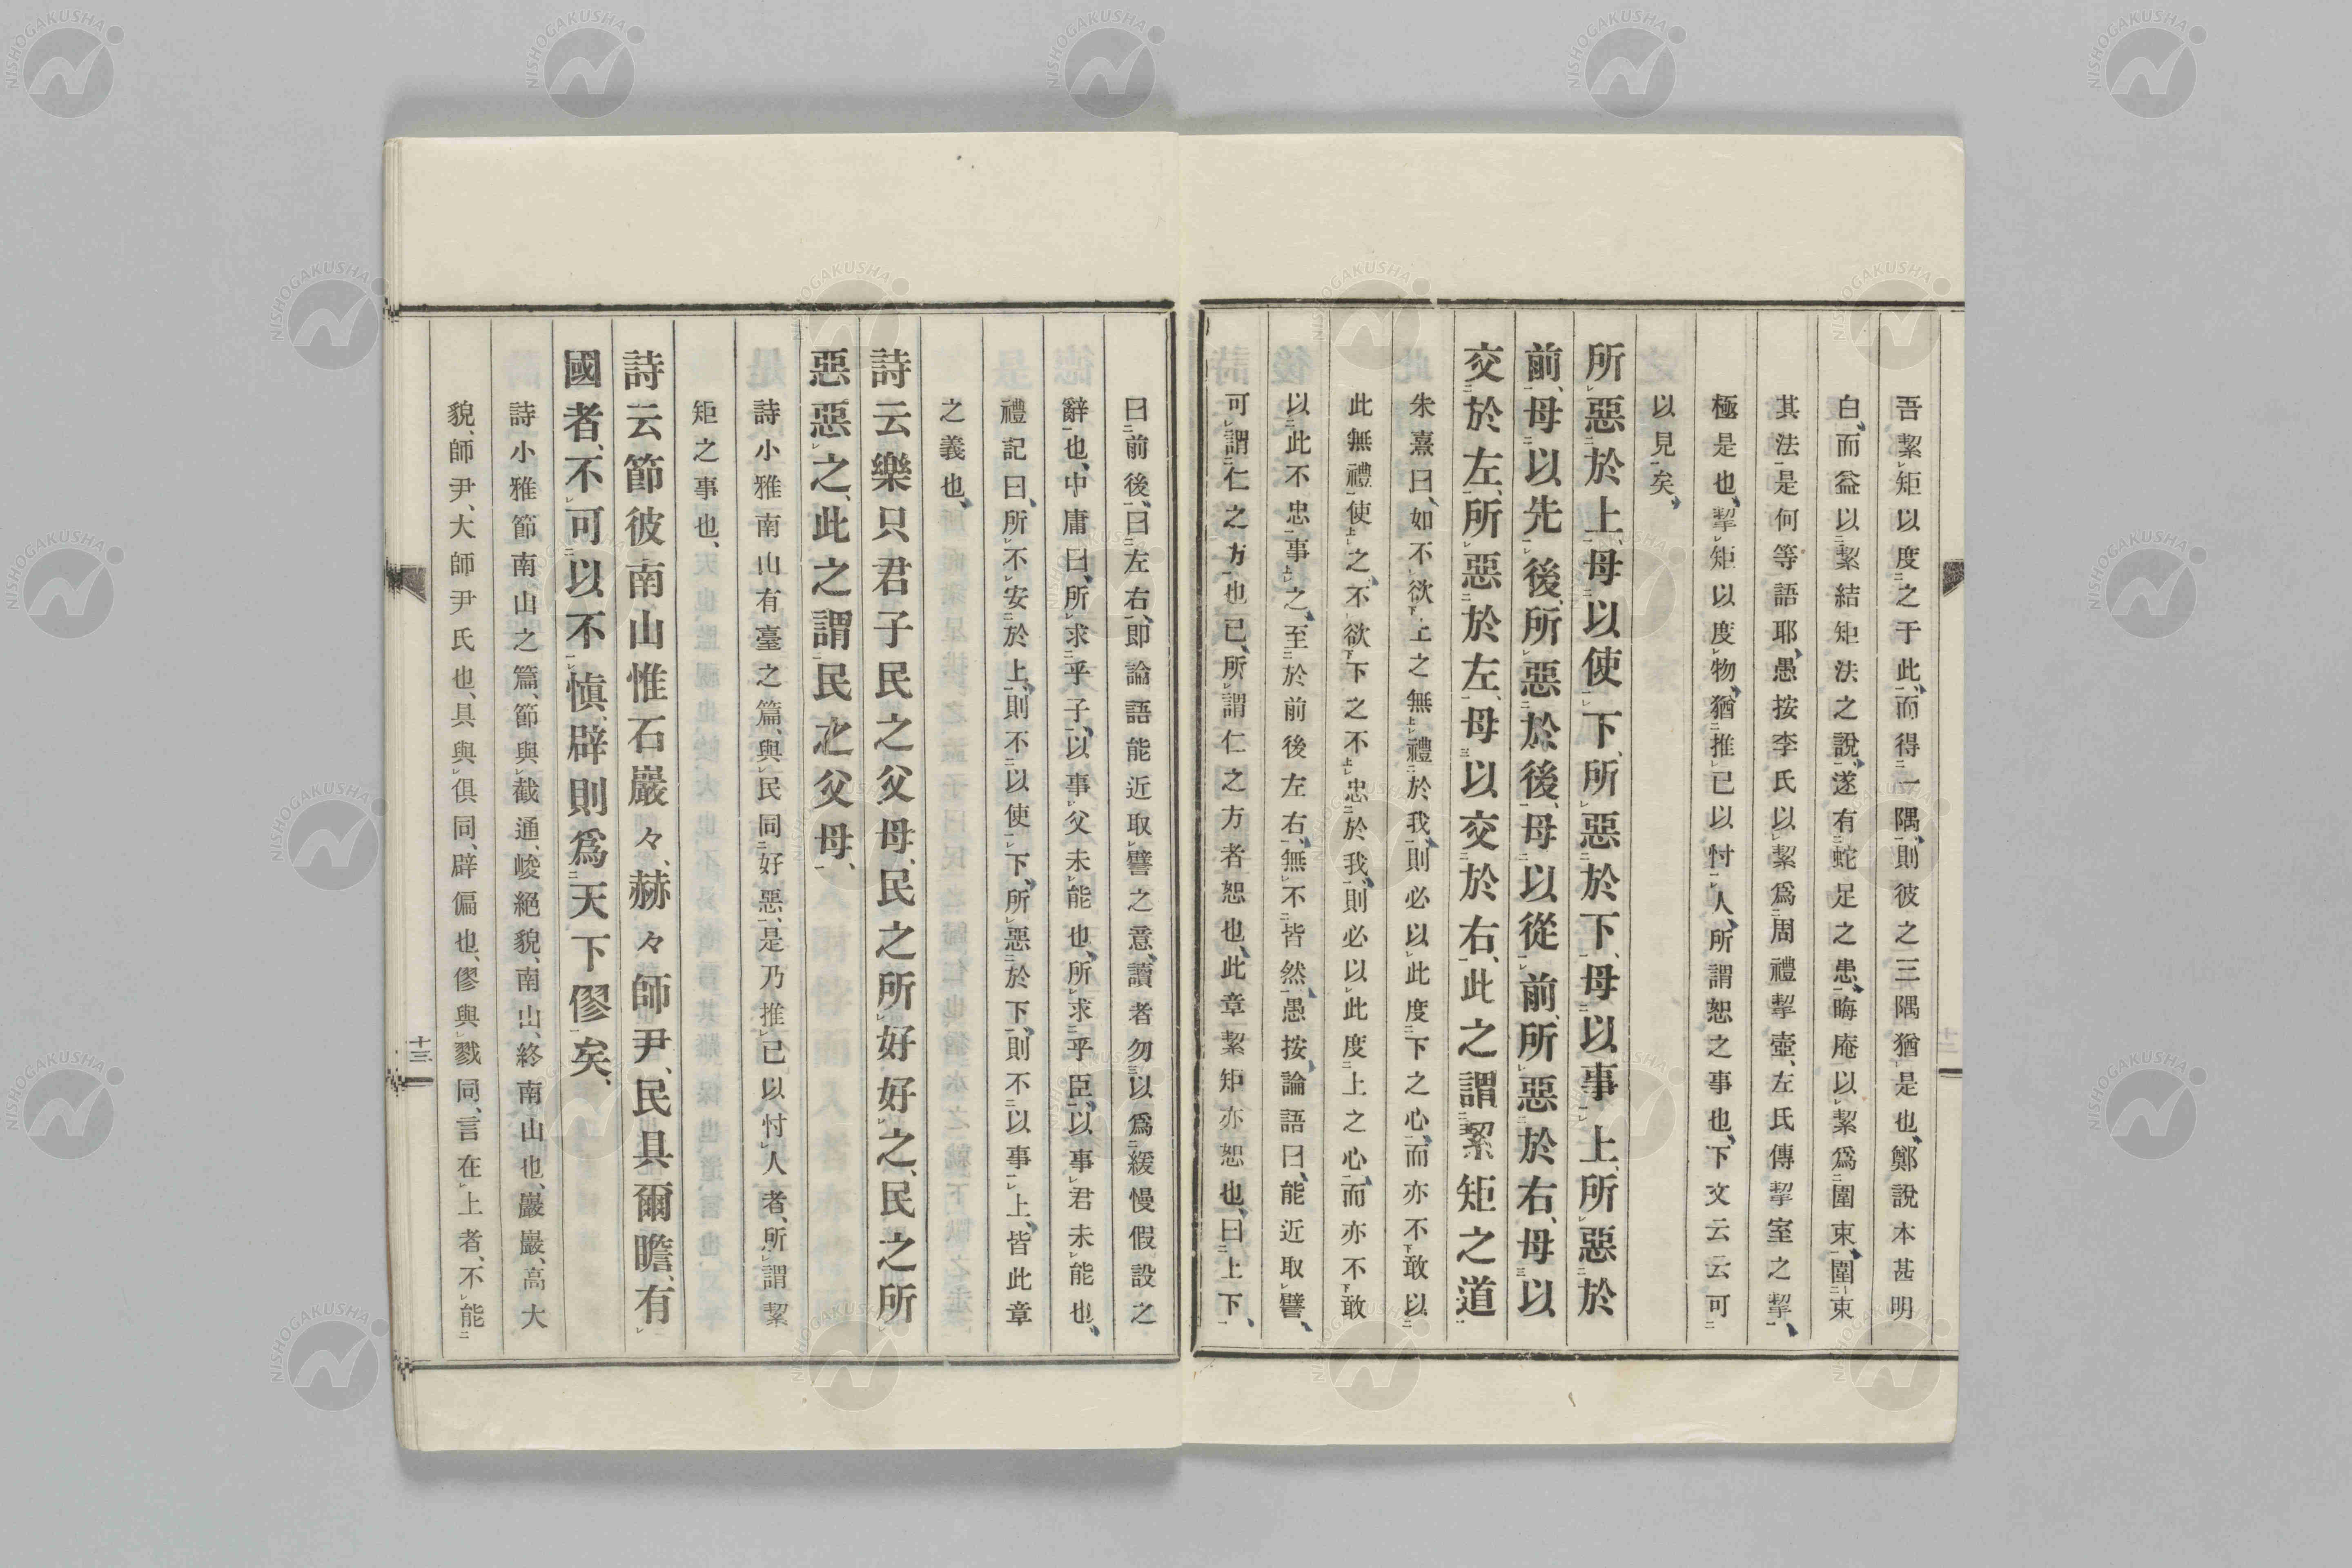 吾絜矩以度之于此、而得一隅、則彼之三隅猶是也、鄭說本甚明
白、而益以絜結矩法之說、遂有蛇足之患、晦庵以絜爲圍束、圍束
其法、是何等語耶、愚按李氏以絜爲周禮挈壺、左氏傳挈室之挈、
極是也、挈矩以度物、猶推已以忖人、所謂恕之事也、下文云云可
以見矣、
所惡於上、毋以使下、所惡於下、毋以事上、所惡於
前、毋以先後、所惡於後、毋以從前、所惡於右、毋以
交於左、所惡於左、毋以交於右、此之謂絜矩之道
朱熹曰、如不欲上之無禮於我、則必以此度下之心、而亦不敢以
此無禮使之、不欲下之不忠於我、則必以此度上之心、而亦不敢
以此不忠事之、至於前後左右、無不皆然、愚按、論語曰、能近取譬、
可謂仁之方也已、所謂仁之方者恕也、此章絜矩亦恕也、曰上下、
曰前後、曰左右、即論語能近取譬之意、讀者勿以爲緩慢假設之
辭也、中庸曰、所求乎子、以事父未能也、所求乎臣、以事君未能也、
禮記曰、所不安於上、則不以使下、所惡於下、則不以事上、皆此章
之義也、
詩云樂只君子民之父母、民之所好好之、民之所
惡惡之、此之謂民之父母、
詩小雅南山有臺之篇、與民同好惡、是乃推已以忖人者、所謂絜
矩之事也、
詩云節彼南山惟石巖々、赫々師尹、民具爾瞻、有
國者、不可以不愼、辟則爲天下僇矣、
詩小雅節南山之篇、節與截通、峻絕貌、南山、終南山也、巖巖、高大
貌、師尹、大師尹氏也、具與俱同、辟偏也、僇與戮同、言在上者、不能
十三
NISHOGAKUSHA